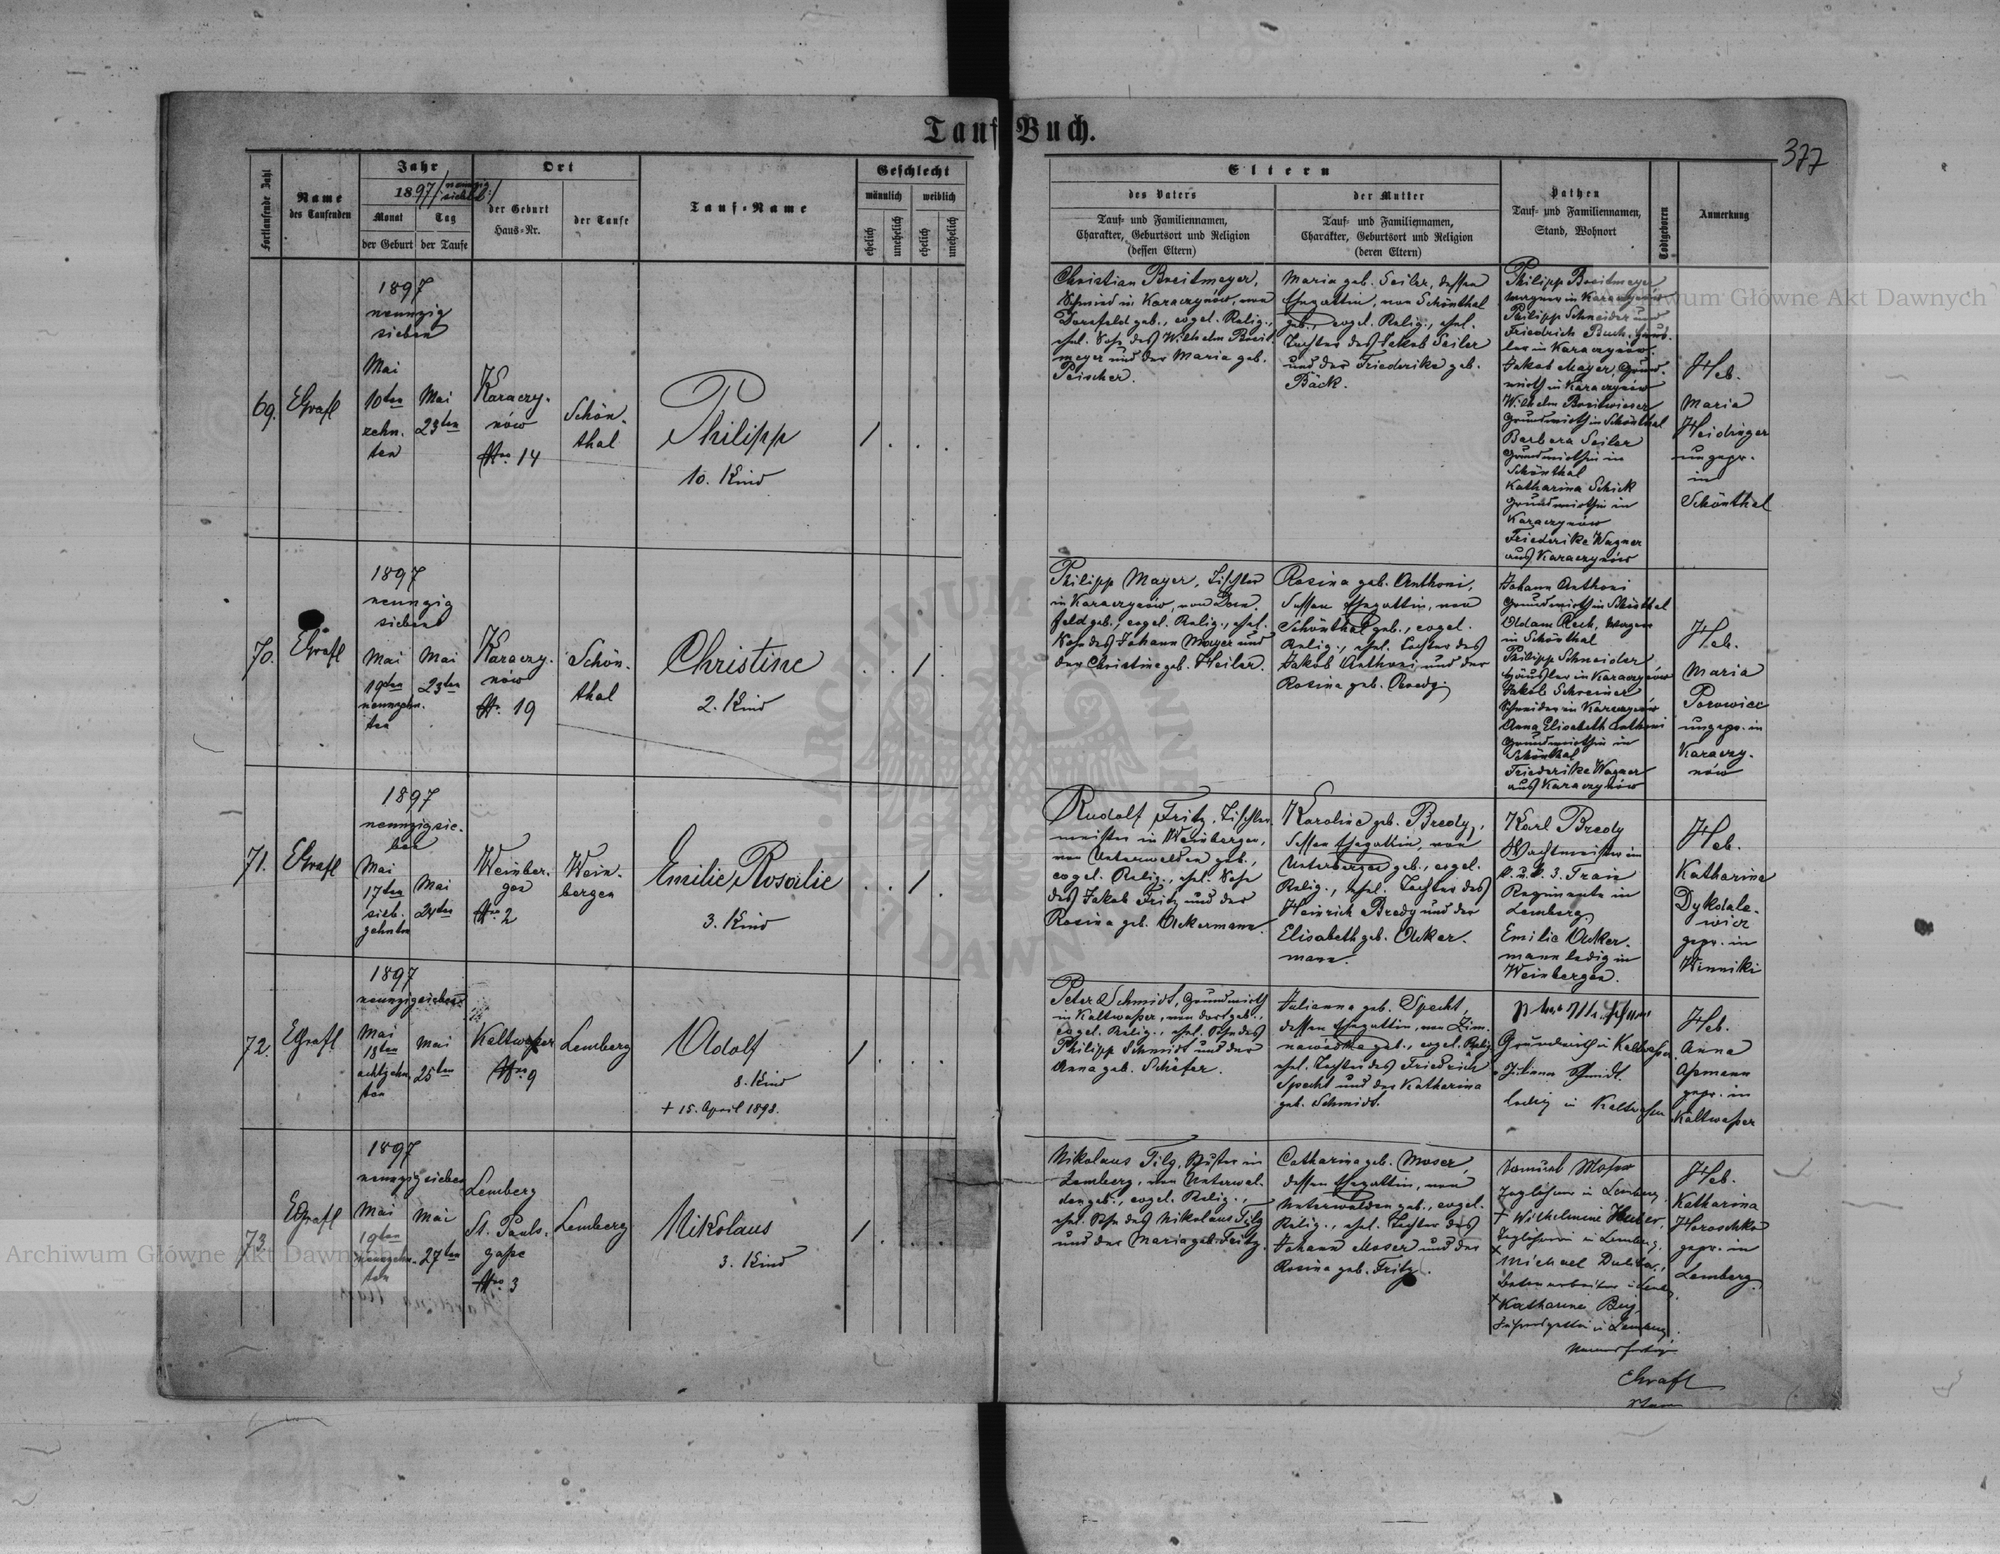 Tauf-Buch.
377
Fortlaufende Zahl
Name
des Taufenden
Jahr
1897/neunzig sieben/
Monat
Tag
der Geburt
der Taufe
Ort
der Geburt
Haus-Nr.
der Taufe
Tauf-Name
Geschlecht
männlich
weiblich
ehelich
unehelich
ehelich
unehelich
Eltern
des Vaters
Tauf- und Familiennamen,
Charakter, Geburtsort und Religion
(dessen Eltern)
der Mutter
Tauf- und Familiennamen,
Charakter, Geburtsort und Religion
(deren Eltern)
Pathen
Tauf- und Familiennamen,
Stand, Wohnort
Todtgeboren
Anmerkung
69.
1897
neunzig
sieben
Mai
10ten
zehn-
ten
Mai
23ten
Karaczy-
nów
Nro. 14
Schön-
thal
Philipp
10. Kind
1 . . .
Christian Breitmeyer,
Schmied in Karaczynów, von
Dornfeld geb., evgel. Relig.,
ehel. Sohn des Wilhelm Breit-
meyer und der Maria geb.
Peischer.
Maria geb. Seiler, dessen
Ehegattin, von Schönthal
geb., evgel. Relig., ehel.
Tochter des Jakob Seiler
und der Friederike geb.
Bäck.
Philipp Breitmeyer
Wagner in Karaczynów
Philipp Schneider und
Friedrich Buch, Häus-
ler in Karaczynów.
Jakob Mayer, Grund-
wirth in Karaczynów
Wilhelm Breitwieser
Grundwirth in Schönthal
Barbara Seiler
Grundwirthin in
Schönthal
Katharina Schick
Grundwirthin in
Karaczynów
Friederike Wagner
aus Karaczynów
Heb.
Maria
Heidinger
ungepr.
in
Schönthal
70.
1897
neunzig
sieben
Mai
19ten
neunzehn-
ten
Mai
23ten
Karaczy-
nów
Nr. 19
Schön-
thal
Christine
2. Kind
. . 1 .
Philipp Mayer, Tischler
in Karaczynów, von Dorn-
feld geb., evgel. Relig., ehel.
Sohn des Johann Mayer und
der Christine geb. Heiler.
Rosina geb. Anthoni,
dessen Ehegattin, von
Schönthal geb., evgel.
Relig., ehel. Tochter des
Jakob Anthoni und der
Rosina geb.
Johann Anthoni
Grundwirth in Schönthal
Adam Rech, Wagner
in Schönthal
Philipp Schneider
Häusler in Karaczynów
Jakob Schreiner
Schneider in Karaczynów
Anna Elisabeth Anthoni
Grundwirthin in
Schönthal
Friederike Wagner
aus Karaczynów
Heb.
Maria
Porowicz
ungepr. in
Karaczy-
nów
71.
1897
neunzigsie-
ben
Mai
17ten
sieb-
zehnten
Mai
24ten
Weinber-
gen
Nro. 2
Wein-
bergen
Emilie Rosalie
3. Kind
. . 1 .
Rudolf Fritz, Tischler-
meister in Weinbergen,
von Unterwalden geb.,
evgel. Relig., ehel. Sohn
des Jakob Fritz und der
Rosina geb. Ackermann.
Karoline geb. Bredy,
dessen Ehegattin, von
Unterbergen geb., evgel.
Relig., ehel. Tochter des
Heinrich Bredy und der
Elisabeth geb. Acker-
mann.
Karl Bredy
Wachtmeister im
k. u. k. 3. Train
Regimente in
Lemberg.
Emilie Acker-
mann ledig in
Weinbergen.
Heb.
Katharina
Dykdale-
wicz
gepr. in
Winniki
72.
1897
neunzigsieben
Mai
18ten
achtzehn-
ten
Mai
25ten
Kaltwaßer
Nro 9
Lemberg
Adolf
8. Kind
+ 15. April 1898.
1 . . .
Peter Schmidt, Grundwirth
in Kaltwaßer, von dort geb.,
evgel. Relig., ehel. Sohn des
Philipp Schmidt und der
Anna geb. Schäfer.
Julianna geb. Specht,
dessen Ehegattin, von Zim-
nawodka geb., evgel. Relig.
ehel. Tochter des Friedrich
Specht und der Katharina
geb. Schmidt.
Grundwirth in Kaltwaßer
Juliana Schmidt
ledig in Kaltwaßer
Heb.
Anna
Aßmann
gepr. in
Kaltwaßer
73.
1897
neunzigsieben
Mai
19ten
neunzehn-
ten
Mai
27ten
Lemberg
St. Pauls-
gaße
Nro 3
Lemberg
Nikolaus
3. Kind
1 . . .
Nikolaus Tilg, in
Lemberg, von Unterwal-
den geb., evgel. Relig.,
ehel. Sohn des Nikolaus Tilg
und der Maria geb. Fritz.
Catharina geb. Moser,
dessen Ehegattin, von
Unterwalden geb., evgel.
Relig., ehel. Tochter des
Johann Moser und der
Rosina geb. Fritz.
Samuel Moser
Taglöhner in Lemberg.
+ Wilhelmine Huber,
Taglöhnerin in Lemberg.
+ Michael
in Lemberg.
+ Katharina
in Lemberg.
Heb.
Katharina
Horoschko
gepr. in
Lemberg.
Archiwum Główne Akt Dawnych
Archiwum Główne Akt Dawnych